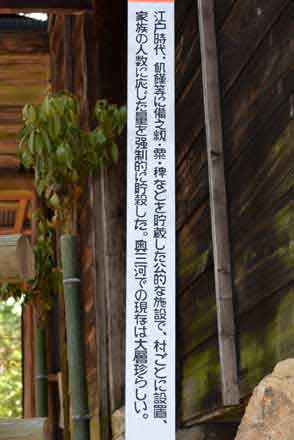 江戸時代、飢饉等に備え籾・粟・稗などを貯蔵した公的な施設で、村ごとに設置、
家族の人数に応じた量を強制的に貯穀した。奥三河での現存は大層珍らしい。